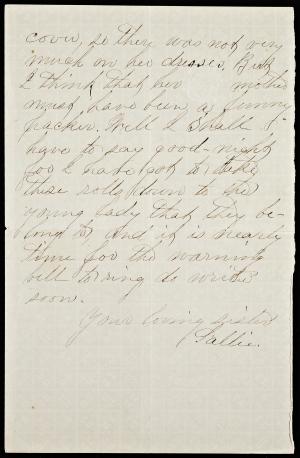 cover, so they was not very
much on her dresses, But
I think that her mother
must have been a funny
packer. Well I shall
have to say good-night
for I have got to take
these rolls down to the
young lady that they be-
long to, and it is nearly
time for the warning
bell to ring do write
soon.
Your loving sister
Sallie.